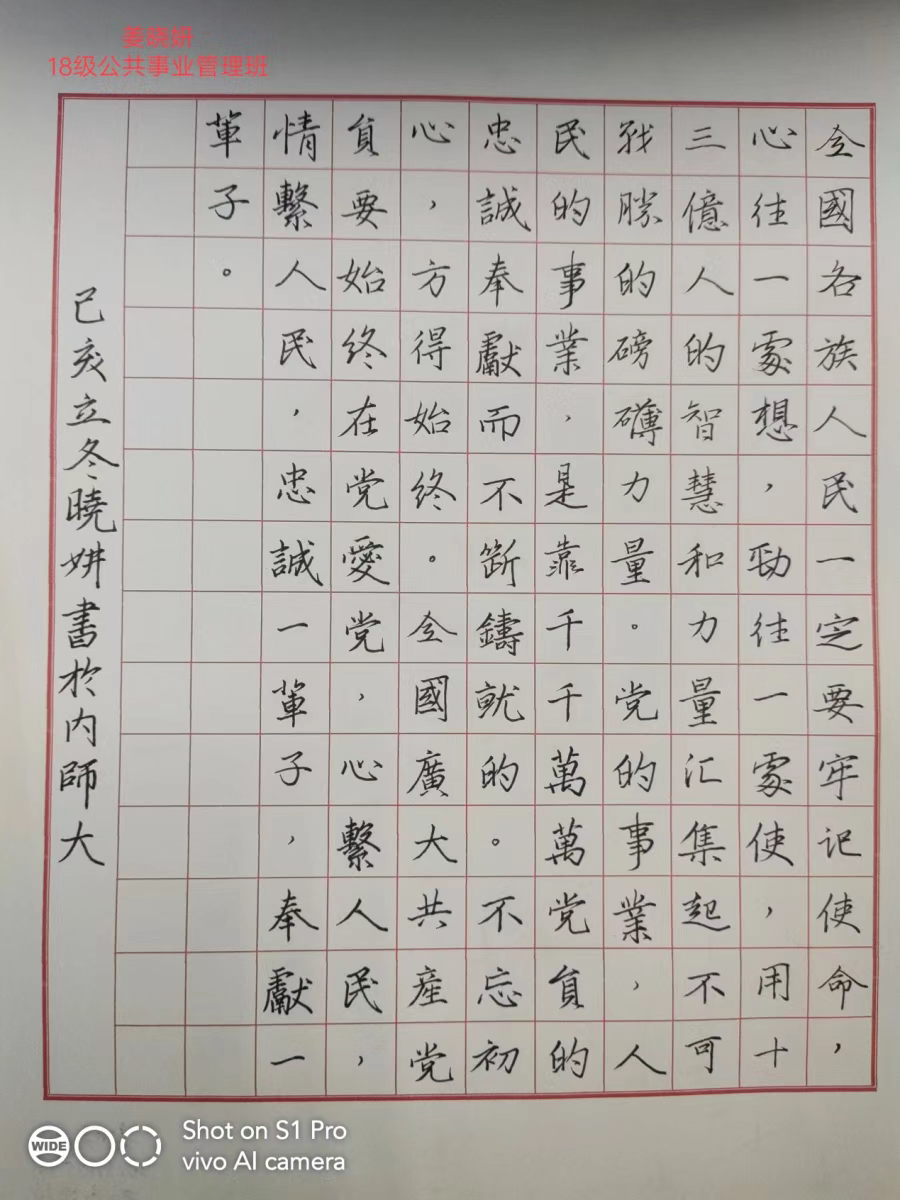 姜晓妍
18级公共事业管理班
全國各族人民一定要牢记使命，
心往一處想，勁往一處使，用十
三億人的智慧和力量汇集起不可
战勝的磅礴力量。党的事業，人
民的事業，是靠千千萬萬党員的
忠誠奉獻而不斷鑄就的。不忘初
心，方得始终。全國廣大共産党
員要始终在党愛党，心繫人民，
情繫人民，忠誠一輩子，奉獻一
輩子。
己亥立冬曉妍書於内師大
WIDE
Shot on S1 Pro
vivo AI camera